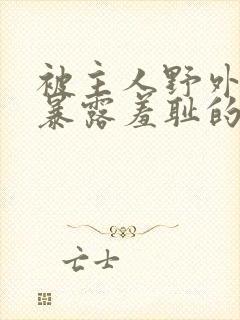 被主人野外
暴露羞耻的
亡士